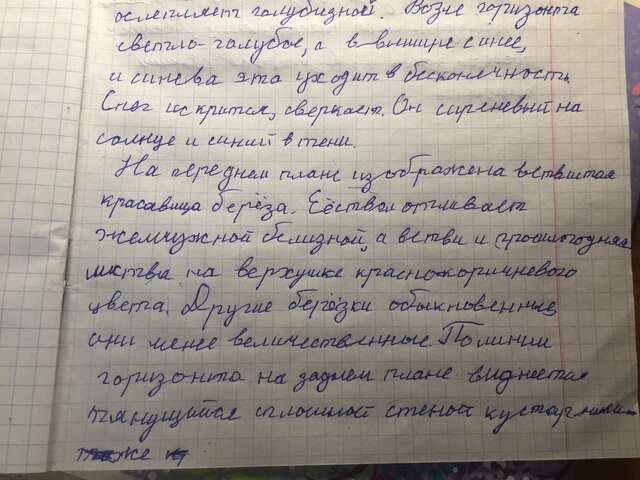 ослепляет голубизной. Возле горизонта
светло-голубое, а в вышине синее,
и синева эта уходит в бесконечность
Снег искрится, сверкает. Он сиреневый на
солнце и синий в тени.
На переднем плане изображена ветвистая
красавица берёза. Её ствол отливает
жемчужной белизной, а ветви и прошлогодняя
листва на верхушке красно-коричневого
цвета. Другие берёзки обыкновенные,
они менее величественные. По линии
горизонта на заднем плане виднеется
тянущийся сплошной стеной кустарник